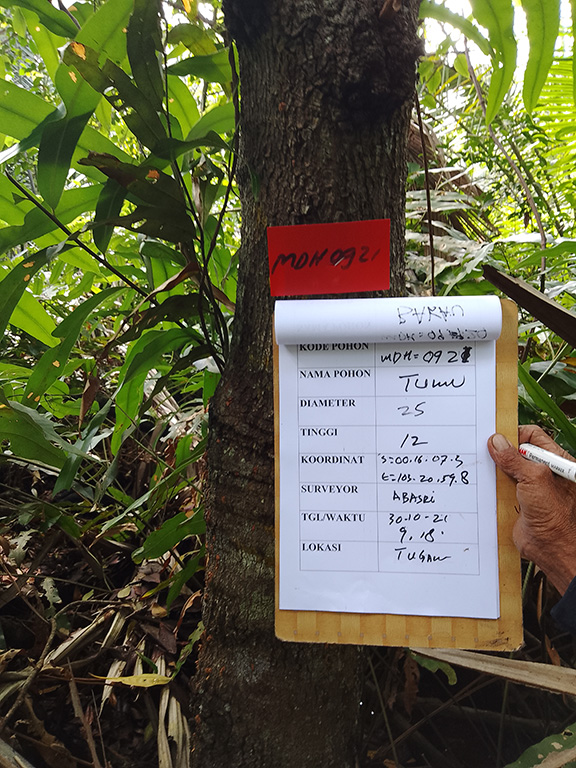 MDH 0921
KODE POHON MDH = 0921
NAMA POHON TUMU
DIAMETER 25
TINGGI 12
KOORDINAT S=00.16.07.3
E=103.20.59.8
SURVEYOR ABASRI
TGL/WAKTU 30-10-21
9.18
LOKASI